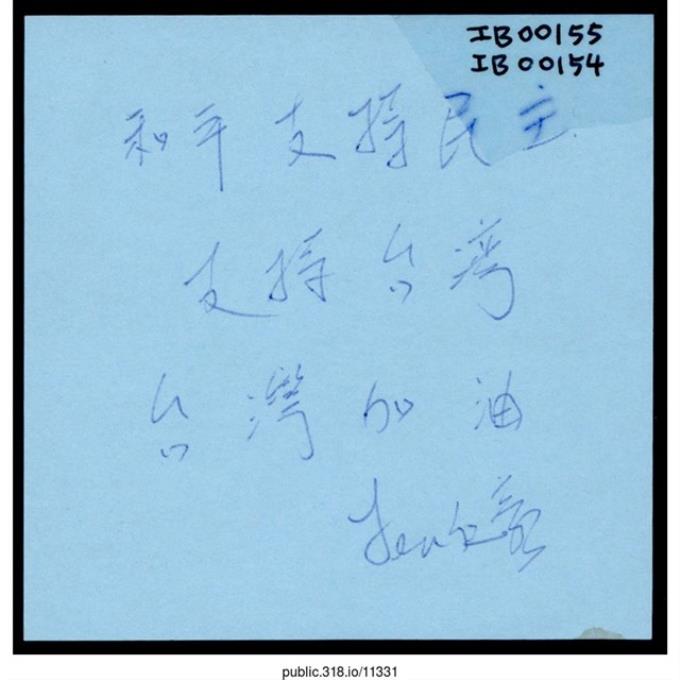 IB00155
IB00154
和平 支持民主
支持台灣
台灣加油
public.318.io/11331